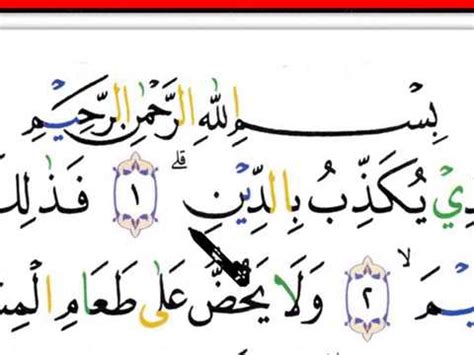 بِسْمِ اللهِ الرَّحْمٰنِ الرَّحِيْمِ
ذِيْ يُكَذِّبُ بِالدِّيْنِۗ ١ فَذٰلِكَ
يْمَۙ ٢ وَلَا يَحُضُّ عَلٰى طَعَامِ الْمِسْ